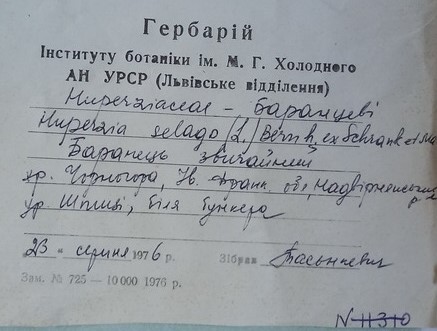 Гербарій
Інституту ботаніки ім. М. Г. Холодного
АН УРСР (Львівське відділення)
Huperziaceae - Баранцеві
Huperzia selago (L.) Bernh. ex Schrank et Ma
Баранець звичайний
хр. Чорногора, Ів. Франк. обл, Надвірнянський р
ур біля бункера
23 " серпня 1976 р. Зібрав Тасєнкевич
Зам. № 725 — 10 000 1976 р.
N 11310